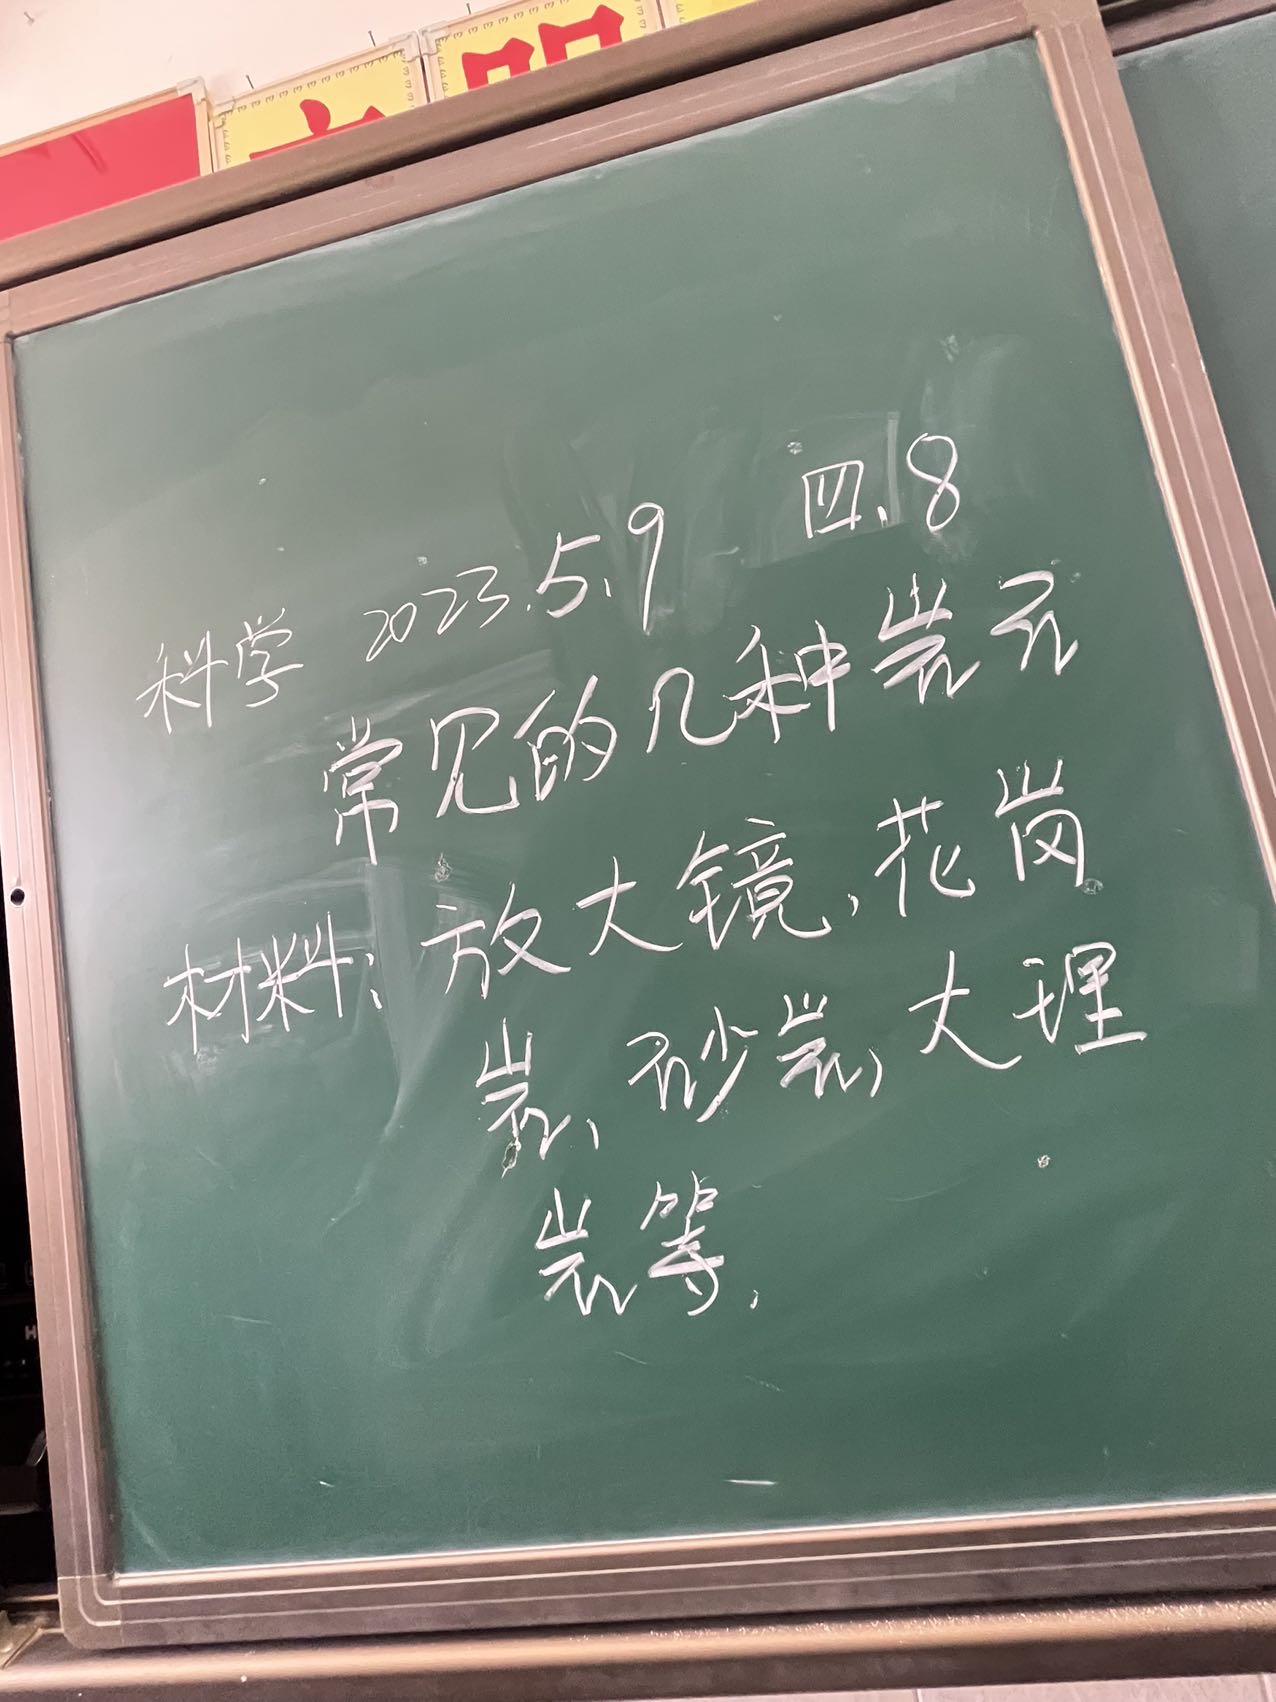 科学 2023.5.9 四.8
常见的几种岩石
材料：放大镜、花岗
岩、砂岩、大理
岩等.